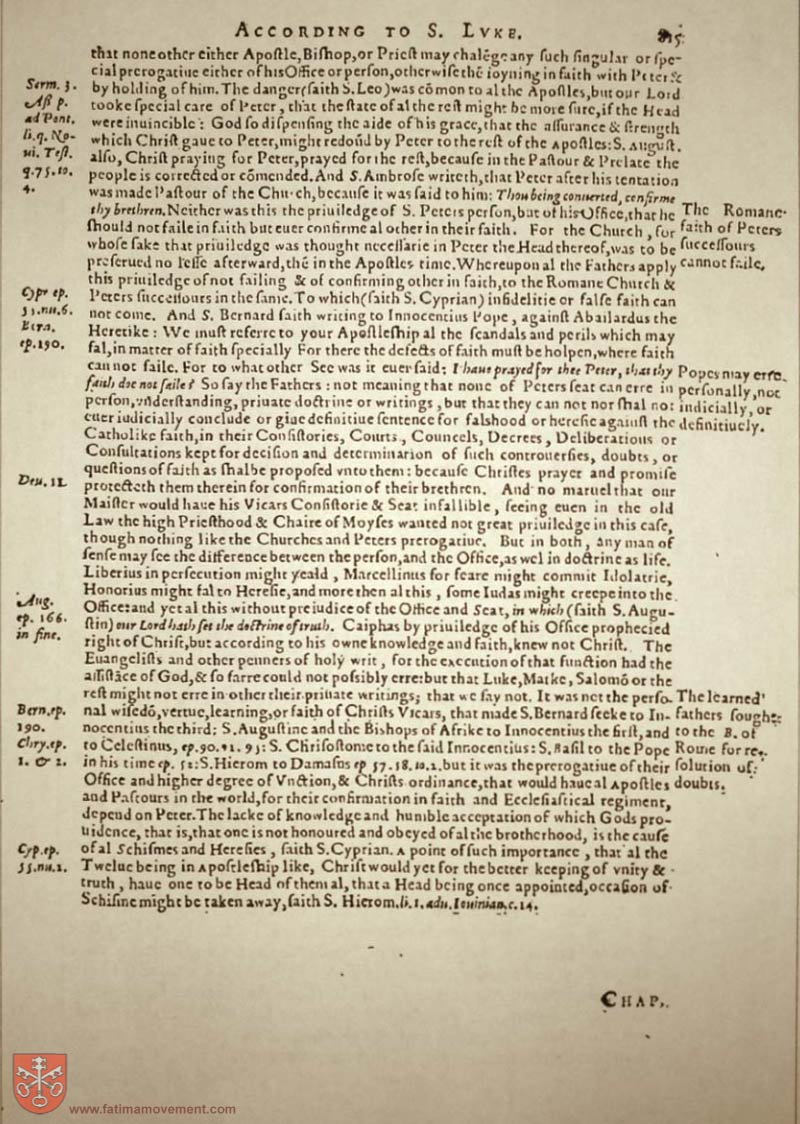 ACCORDING TO S. LVKE.
that none other either Apoſtle, Biſhop, or Prieſt may chalẽge any ſuch ſingular or ſpe-
cial prerogatiue either of his Office or perſon, otherwiſe thẽ ioyning in faith with Peter &
by holding of him. The danger (ſaith S. Leo) was cõmon to al the Apoſtles, but our Lord
tooke ſpecial care of Peter, that the ſtate of al the reſt might be more ſure, if the Head
were inuincible: God ſo diſpenſing the aide of his grace, that the aſſurance & ſtrength
which Chriſt gaue to Peter, might redoũd by Peter to the reſt of the Apoſtles: S. Auguſt.
alſo, Chriſt praying for Peter, prayed for the reſt, becauſe in the Paſtour & Prelate the
people is corrected or cõmended. And S. Ambroſe writeth, that Peter after his tentation
was made Paſtour of the Church, becauſe it was ſaid to him: Thou being conuerted, confirme
thy brethren. Neither was this the priuiledge of S. Peters perſon, but of his Office, that he
ſhould not faile in faith but euer confirme al other in their faith. For the Church, for
whoſe ſake that priuiledge was thought neceſſarie in Peter the Head thereof, was to be
preſerued no leſſe afterward, thẽ in the Apoſtles time. Whereupon al the Fathers apply
this priuiledge of not failing & of confirming other in faith, to the Romane Church &
Peters ſucceſſours in the ſame. To which (ſaith S. Cyprian) infidelitie or falſe faith can
not come. And S. Bernard ſaith writing to Innocentius Pope, againſt Abailardus the
Heretike: We muſt referre to your Apoſtleſhip al the ſcandals and perils which may
fal, in matter of faith ſpecially For there the defects of faith muſt be holpen, where faith
cannot faile. For to what other See was it euer ſaid: I haue prayed for thee Peter, that thy
faith doe not faile? So ſay the Fathers: not meaning that none of Peters ſeat can erre in
perſon, vnderſtanding, priuate doctrine or writings, but that they can not nor ſhal not
euer iudicially conclude or giue definitiue ſentence for falshood or hereſie againſt the
Catholike faith, in their Conſiſtories, Courts, Councels, Decrees, Deliberations or
Conſultations kept for deciſion and determination of ſuch controuerſies, doubts, or
queſtions of faith as ſhalbe propoſed vnto them: becauſe Chriſtes prayer and promiſe
protecteth them therein for confirmation of their brethren. And no maruel that our
Maiſter would haue his Vicars Conſiſtorie & Seat infallible, ſeeing euen in the old
Law the high Prieſthood & Chaire of Moyſes wanted not great priuiledge in this caſe,
though nothing like the Churches and Peters prerogatiue. But in both, any man of
ſenſe may ſee the difference between the perſon, and the Office, as wel in doctrine as life.
Liberius in perſecution might yeald, Marcellinus for feare might commit Idolatrie,
Honorius might fal to Hereſie, and more then al this, ſome Iudas might creepe into the
Office: and yet al this without preiudice of the Office and Seat, in which (ſaith S. Augu-
ſtin) our Lord hath ſet the doctrine of truth. Caiphas by priuiledge of his Office prophecied
right of Chriſt, but according to his owne knowledge and faith, knew not Chriſt. The
Euangeliſts and other penners of holy writ, for the execution of that function had the
aſſiſtãce of God, & ſo farre could not poſsibly erre: but that Luke, Marke, Salomõ or the
reſt might not erre in other their priuate writings; that we ſay not. It was not the perſo-
nal wiſedõ, vertue, learning, or faith of Chriſts Vicars, that made S. Bernard ſeeke to In-
nocentius the third; S. Auguſtine and the Bishops of Afrike to Innocentius the firſt, and
to Celeſtinus, ep. 90. 91. 95: S. Chriſoſtome to the ſaid Innocentius: S. Baſil to the Pope
in his time ep. 52: S. Hierom to Damaſus ep 57. 58. to. 2. but it was the prerogatiue of their
Office and higher degree of Vnction, & Chriſts ordinance, that would haue al Apoſtles
and Paſtours in the world, for their confirmation in faith and Eccleſiaſtical regiment,
depend on Peter. The lacke of knowledge and humble acceptation of which Gods pro-
uidence, that is, that one is not honoured and obeyed of al the brotherhood, is the cauſe
of al Schiſmes and Hereſies, ſaith S. Cyprian. A point of ſuch importance, that al the
Twelue being in Apoſtleſhip like, Chriſt would yet for the better keeping of vnity &
truth, haue one to be Head of them al, that a Head being once appointed, occaſion of
Schiſme might be taken away, ſaith S. Hierom. li. 1. adu. Iouinian. c. 14.
CHAP.
Serm. 3.
Aſſ p.
ad Pont.
li. q. No-
ui. Teſt.
q. 75. to.
4.
Cypr ep.
55. nu. 6.
Bern.
ep. 190.
Deu. 11.
Aug.
ep. 166.
in fine.
Bern. ep.
190.
Chry. ep.
1. & 2.
Cyp. ep.
55. nu. 2.
The Romane
faith of Peters
ſucceſſours
cannot faile.
Popes may erre
perſonally, not
iudicially, or
definitiuely.
The learned
fathers ſought
to the B. of
Rome for re-
ſolution of
doubts.
www.fatimamovement.com